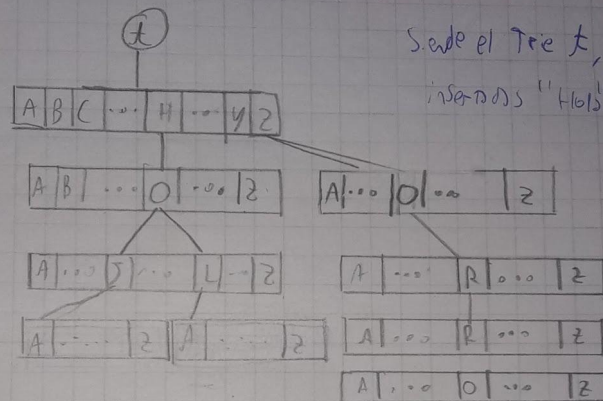 t
Siendo el Trie t,
insertados "Hola"
A B C ... H ... Y Z
A B ... O ... Z
A ... O ... Z
A ... J ... L ... Z
A ... R ... Z
A ... Z
A ... Z
A ... R ... Z
A ... O ... Z